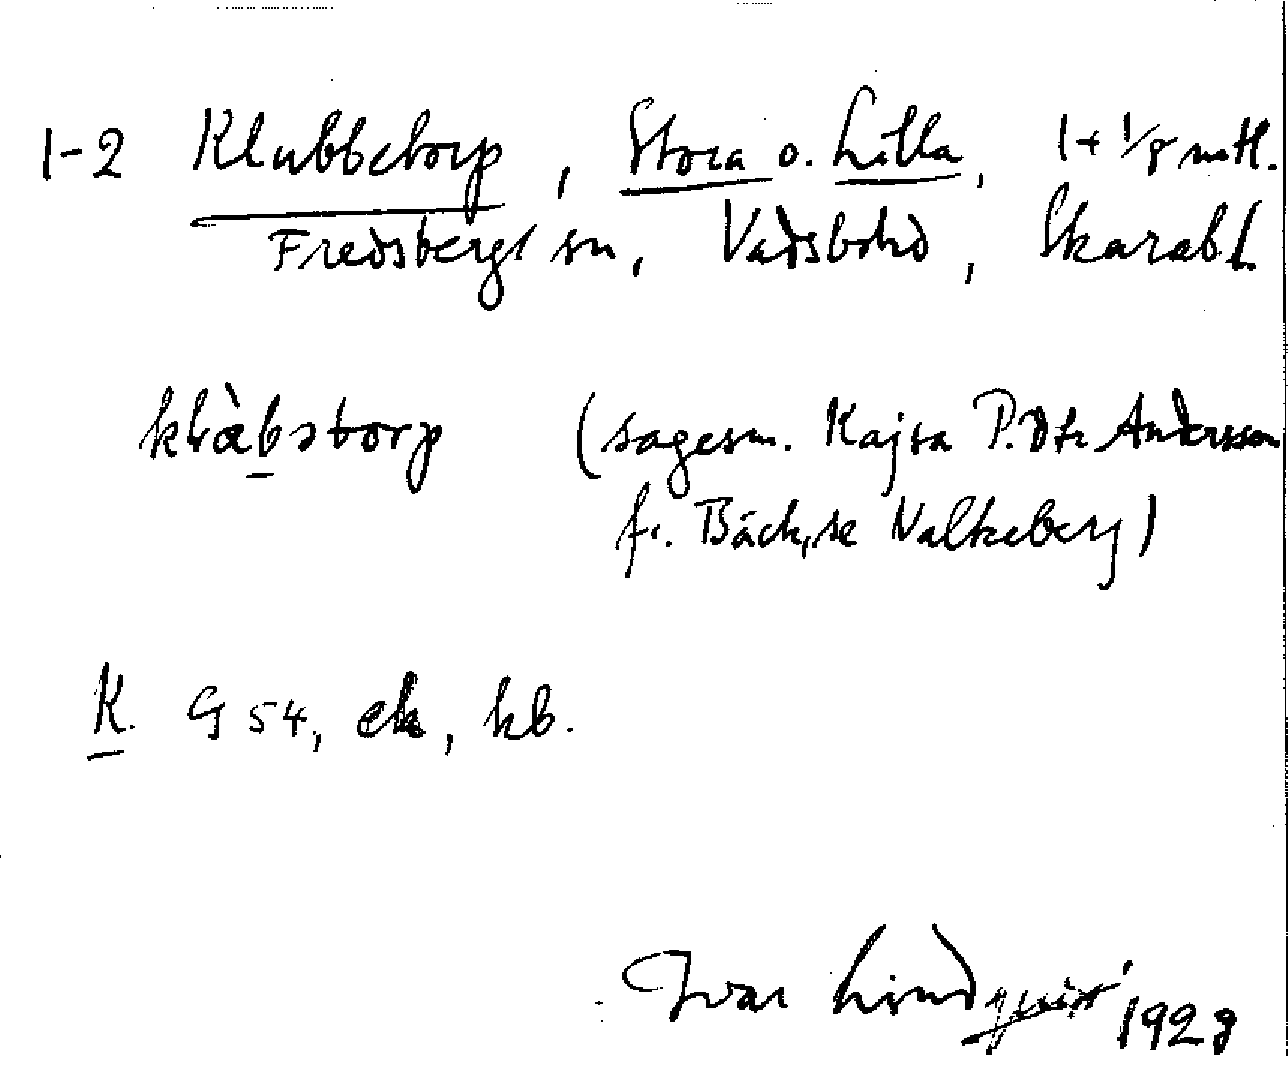 1-2 Klubbetorp, Stora o. Lilla, 1+1/8 mtl.
Fredsbergs sn, Vadsbo hd, Skarab. l.
(sagesm. Kajsa P. dtr Andersson
fr. Bäck, se Valkeberg)
K. G 54, ek, kb.
Ivar Lindquist 1928